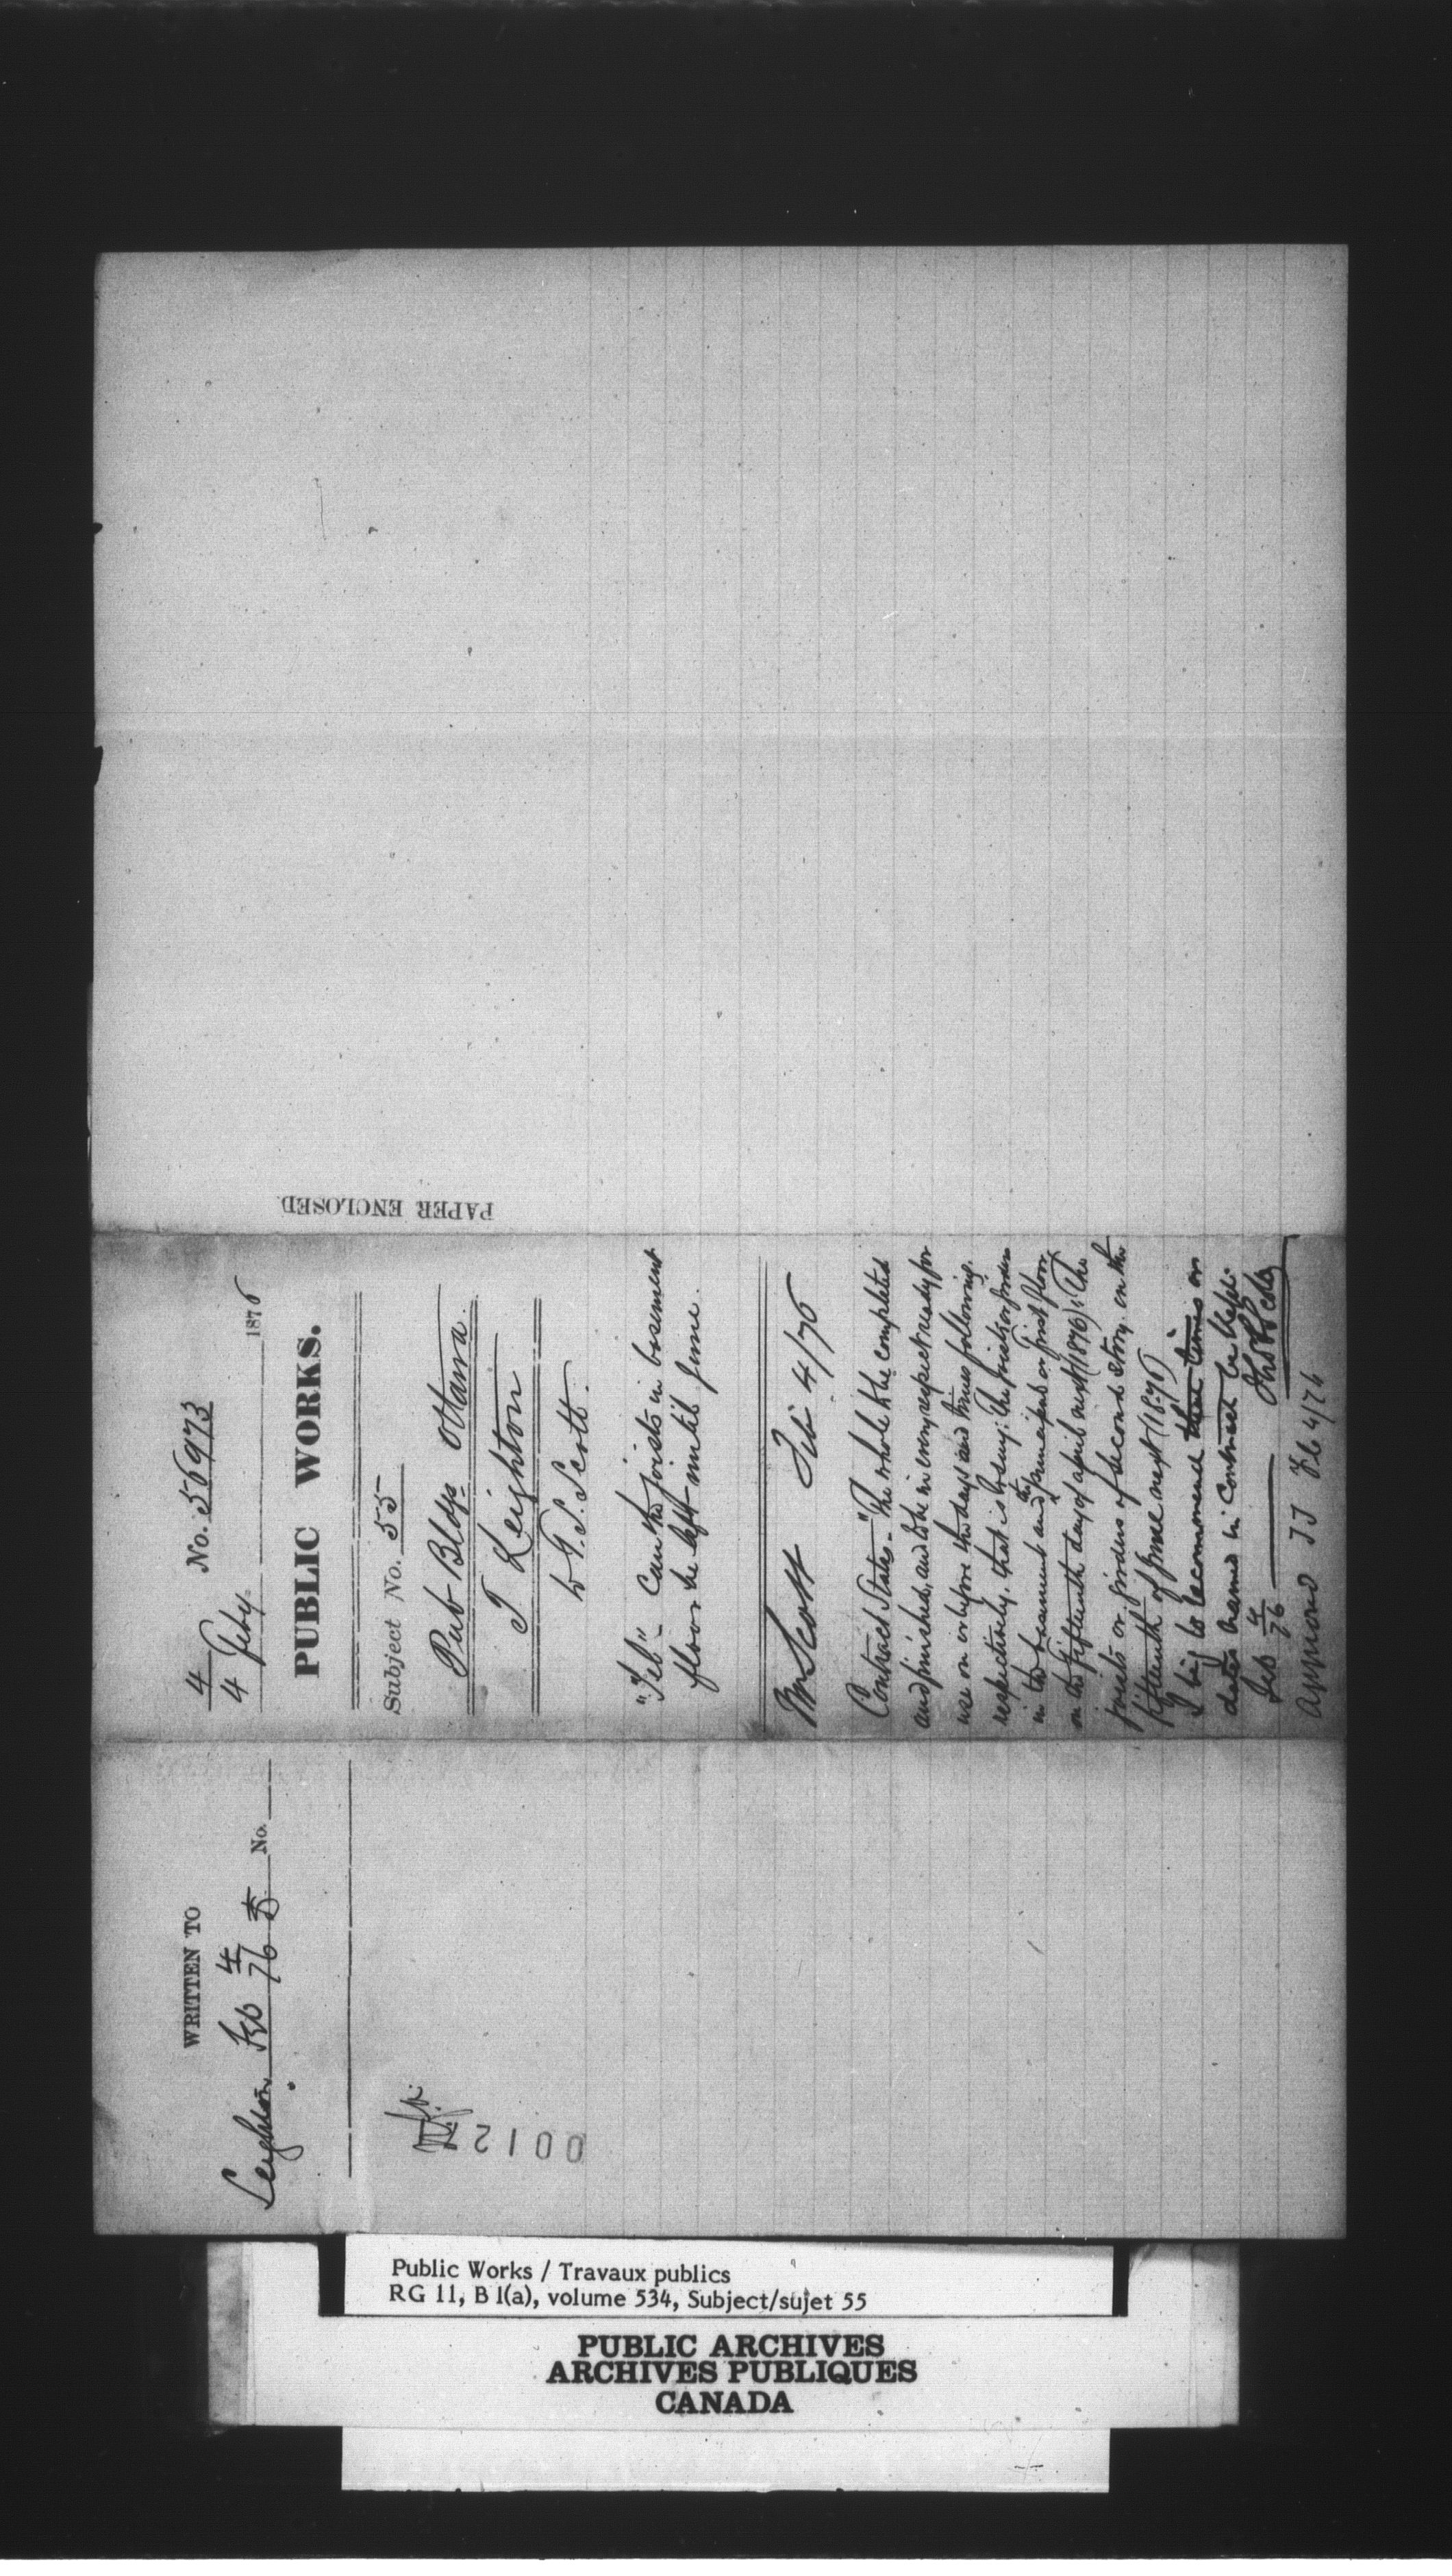 4 No. 56973
4 Feby 1876
PUBLIC WORKS.
Subject No. 55
Pub Bldgs Ottawa
T Leighton
T. S. Scott.
"Tel" - Can the joists in basement
floor be left until June.
Mr Scott Feb 4/76
Contract States - "The whole to be completed
and finished, and to be in every respect ready for
use on or before the days and times following
respectively, that is to say: The joists or girders
in the basement and the principal or first floor,
on the fifteenth day of April next (1876); The
joists or girders of second story, on the
fifteenth of June next (1876)"
I beg to recommend that times or
dates named in Contract be kept.
Feb 4/76 Thos S Scott
Approved TT Feb 4/76
PAPER ENCLOSED
WRITTEN TO
Leighton Feb 4/76 No.
0012
Public Works / Travaux publics
RG 11, B 1(a), volume 534, Subject/sujet 55
PUBLIC ARCHIVES
ARCHIVES PUBLIQUES
CANADA